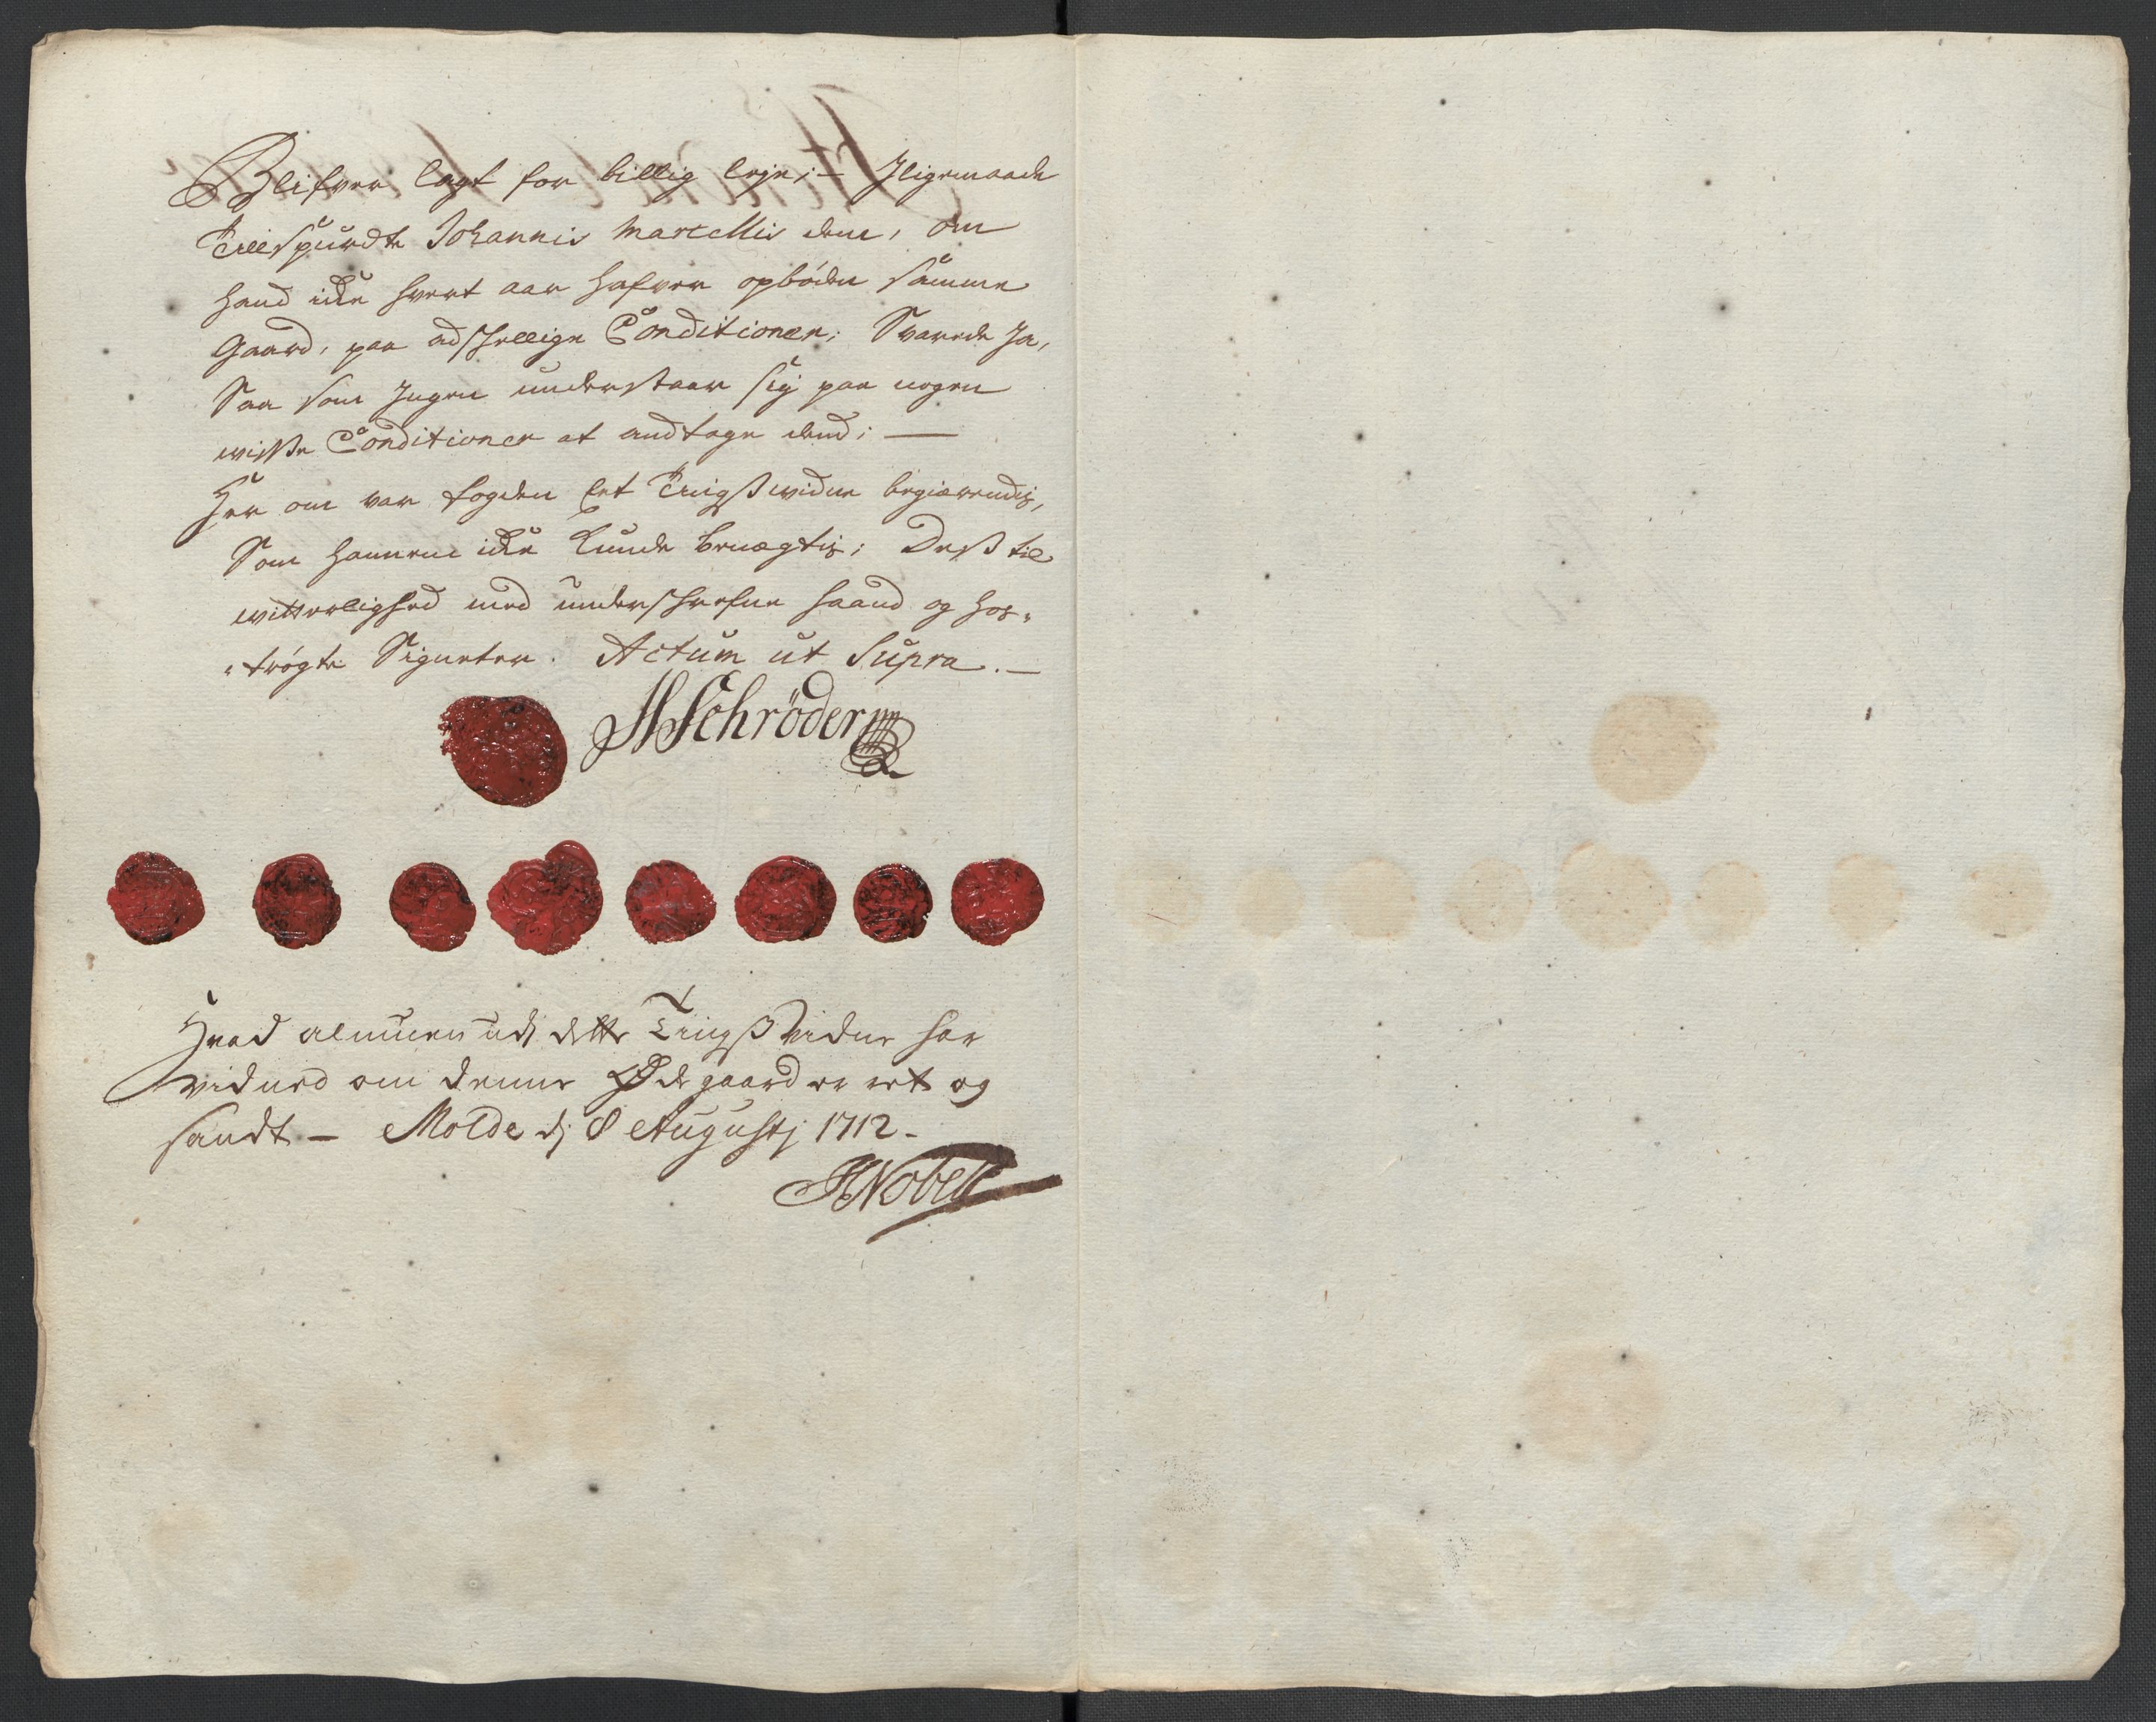 Blifver lagt for billig leje; – Jligemaade
Tilspurdte Johannis Marcellis dem, om
hand icke hvert aar hafver opböden samme
Gaard, paa adschellige Conditioner; Svarede Ja,
Saa som Jngen understaar sig paa nogen
wisse Conditioner at andtage dend; —
Her om var fogden Et Tingswidne begiærendis,
Som hannem icke kunde benægtis; Dess til
witterlighed med underschrefne haand og hos-
-trögte Signeter. Actum ut Supra. —
HSchröder
Hvad almuen udj dette Tingsvidne har
vidned om denne Ødegaard er ret og
sandt – Molde dj 8 Augustj 1712 –
JNobell